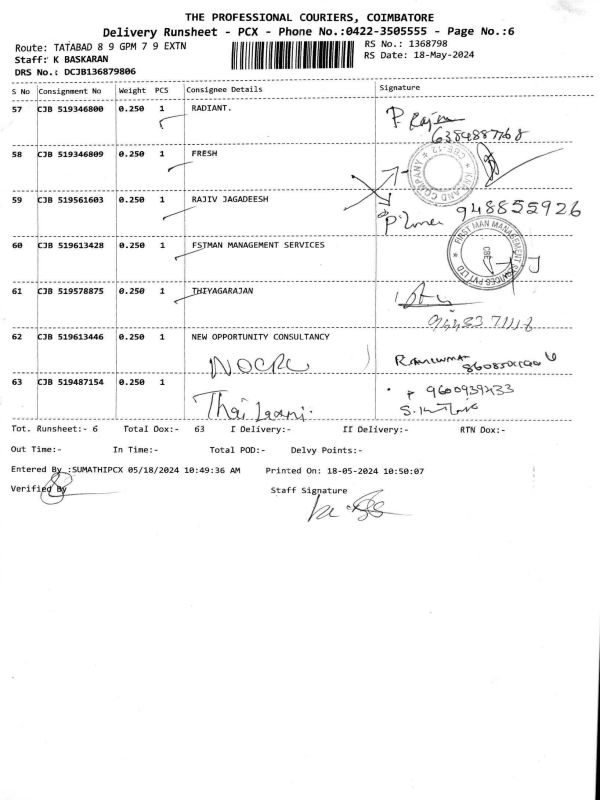 THE PROFESSIONAL COURIERS, COIMBATORE
Delivery Runsheet - PCX - Phone No.:0422-3505555 - Page No.:6
Route: TATABAD 8 9 GPM 7 9 EXTN
RS No.: 1368798
Staff: K BASKARAN
RS Date: 18-May-2024
DRS No.: DCJB136879806
S No Consignment No Weight PCS Consignee Details Signature
57 CJB 519346800 0.250 1 RADIANT.
6384887768
58 CJB 519346809 0.250 1 FRESH
59 CJB 519561603 0.250 1 RAJIV JAGADEESH
948855926
60 CJB 519613428 0.250 1 FSTMAN MANAGEMENT SERVICES
FIRST MAN MANAGEMENT SERVICES PVT LTD
CBE
61 CJB 519578875 0.250 1 THIYAGARAJAN
62 CJB 519613446 0.250 1 NEW OPPORTUNITY CONSULTANCY
63 CJB 519487154 0.250 1
9600939433
Tot. Runsheet:- 6 Total Dox:- 63 I Delivery:- II Delivery:- RTN Dox:-
Out Time:- In Time:- Total POD:- Delvy Points:-
Entered By :SUMATHIPCX 05/18/2024 10:49:36 AM Printed On: 18-05-2024 10:50:07
Verified By Staff Signature